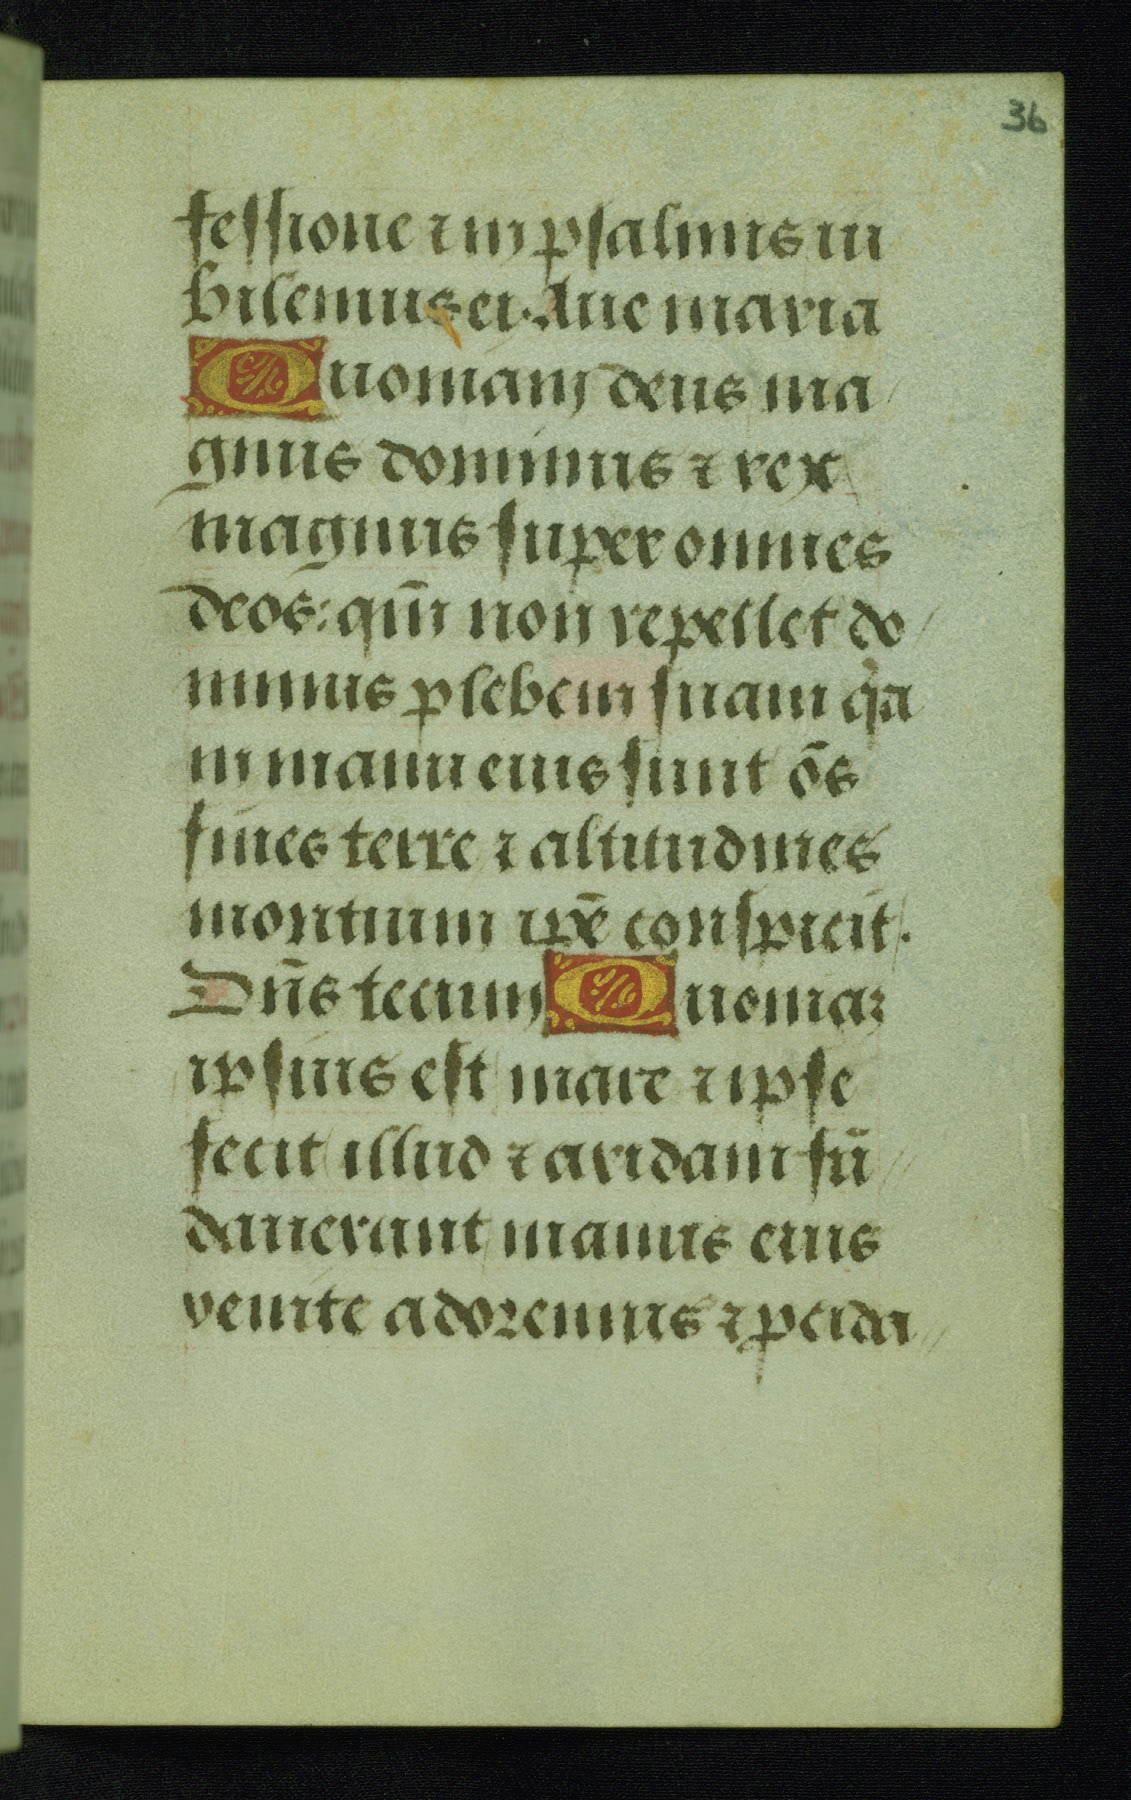 36
fessione ⁊ in psalmis iu
bilemus ei. Aue maria
Quoniam deus ma
gnus dominus ⁊ rex
magnus super omnes
deos: qm̄ non repellet do
minus plebem suam qͣa
in manu eius sunt ōs
fines terre ⁊ altitudines
montium ip̄e conspicit.
Dn̄s tecum Quoniaz
ipsius est mare ⁊ ipse
fecit illud ⁊ aridam fū
dauerunt manus eius
venite adoremus ⁊ pcida